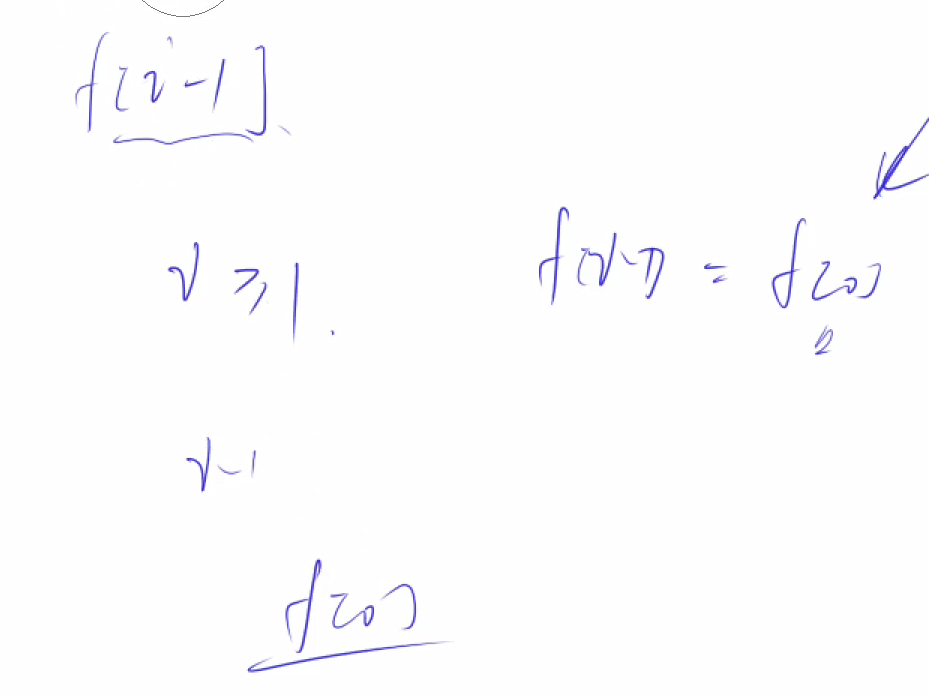 f[i-1]
i ≥ 1.
f[i-1] = f[0]
i-1
f[0]